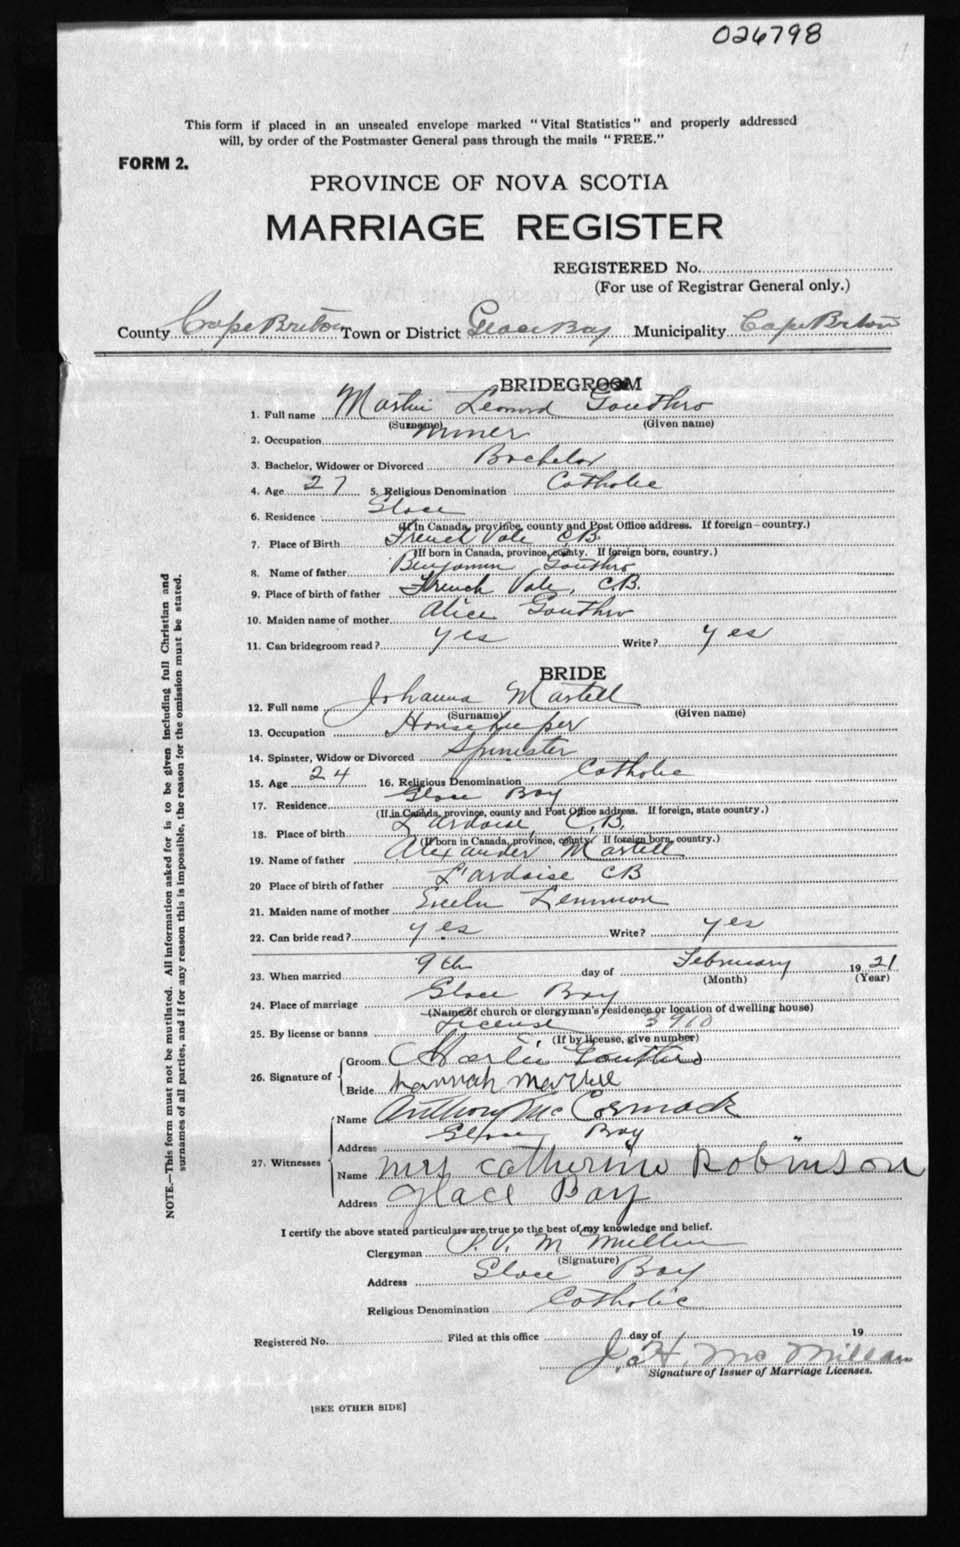 026798
This form if placed in an unsealed envelope marked "Vital Statistics" and properly addressed
will, by order of the Postmaster General pass through the mails "FREE."
FORM 2.
PROVINCE OF NOVA SCOTIA
MARRIAGE REGISTER
REGISTERED No.
(For use of Registrar General only.)
County Cape Breton Town or District Glace Bay Municipality Cape Breton
BRIDEGROOM
1. Full name Martin Leonard Gouthro
(Surname) (Given name)
2. Occupation Miner
3. Bachelor, Widower or Divorced Bachelor
4. Age 27 5. Religious Denomination Catholic
6. Residence Glace
(If in Canada, province, county and Post Office address. If foreign—country.)
7. Place of Birth French Vale C.B.
(If born in Canada, province, county. If foreign born, country.)
8. Name of father Benjamin Gouthro
9. Place of birth of father French Vale, C.B.
10. Maiden name of mother Alice Gouthro
11. Can bridegroom read? yes Write? yes
BRIDE
12. Full name Johanna Martell
(Surname) (Given name)
13. Occupation Housekeeper
14. Spinster, Widow or Divorced Spinister
15. Age 24 16. Religious Denomination Catholic
17. Residence Glace Bay
(If in Canada, province, county and Post Office address. If foreign, state country.)
18. Place of birth L'ardoise, C.B.
(If born in Canada, province, county. If foreign born, country.)
19. Name of father Alexander Martell
20 Place of birth of father L'ardoise CB
21. Maiden name of mother
22. Can bride read? yes Write? yes
23. When married 9th day of February 1921
(Month) (Year)
24. Place of marriage Glace Bay
(Name of church or clergyman's residence or location of dwelling house)
25. By license or banns License 3910
(If by license, give number)
26. Signature of Groom Martin Gouthro
Bride hannah martell
27. Witnesses Name Anthony McCormack
Address Glace Bay
Name Mrs Catherine Robinson
Address Glace Bay
I certify the above stated particulars are true to the best of my knowledge and belief.
Clergyman
(Signature)
Address Glace Bay
Religious Denomination Catholic
Registered No. Filed at this office day of 19
J. H. McMillan
Signature of Issuer of Marriage Licenses.
[SEE OTHER SIDE]
NOTE.—This form must not be mutilated. All information asked for is to be given including full Christian and
surnames of all parties, and if for any reason this is impossible, the reason for the omission must be stated.